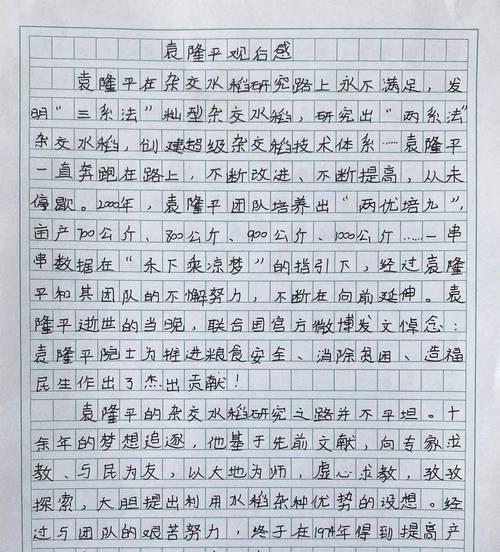 袁隆平观后感
袁隆平在杂交水稻研究路上永不满足，发
明“三系法”籼型杂交水稻，研究出“两系法”
杂交水稻，创建超级杂交稻技术体系……袁隆平
一直奔跑在路上，不断改进、不断提高，从未
停歇。2000年，袁隆平团队培养出“两优培九”，
亩产700公斤、800公斤、900公斤、1000公斤……一串
串数据在“禾下乘凉梦”的指引下，经过袁隆
平和其团队的不懈努力，不断在向前延伸。袁
隆平逝世的当晚，联合国官方微博发文悼念：
袁隆平院士为推进粮食安全、消除贫困、造福
民生作出了杰出贡献！
袁隆平的杂交水稻研究之路并不平坦。十
余年的梦想追逐，他基于先前文献，向专家求
教、与民为友，以大地为师，虚心求教，孜孜
探索，大胆提出利用水稻杂种优势的设想。经
过与团队的艰苦努力，终于在1974年得到提高产